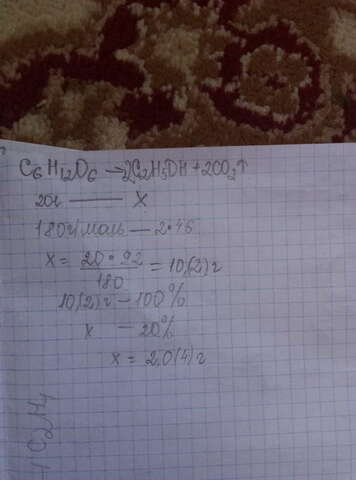 C₆H₁₂O₆ → 2C₂H₅OH + 2CO₂↑
20г — X
180г/моль — 2·46
x = 20·92/180 = 10,(2) г
10,(2) г — 100%
x — 20%
x = 2,0(4) г
C₂H₄